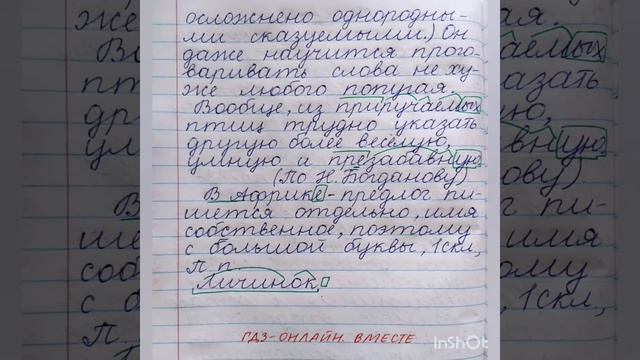 осложнено однородны-
ми сказуемыми.) Он
даже научится прого-
варивать слова не ху-
же любого попугая.
Вообще, из приручаемых
птиц трудно указать
другую более весёлую,
умную и презабавную.
(По Н. Богданову)
В Африке - предлог пи-
шется отдельно, имя
собственное, поэтому
с большой буквы, 1 скл,
П. п.
Личинок
ГДЗ-ОНЛАЙН ВМЕСТЕ
InShOt